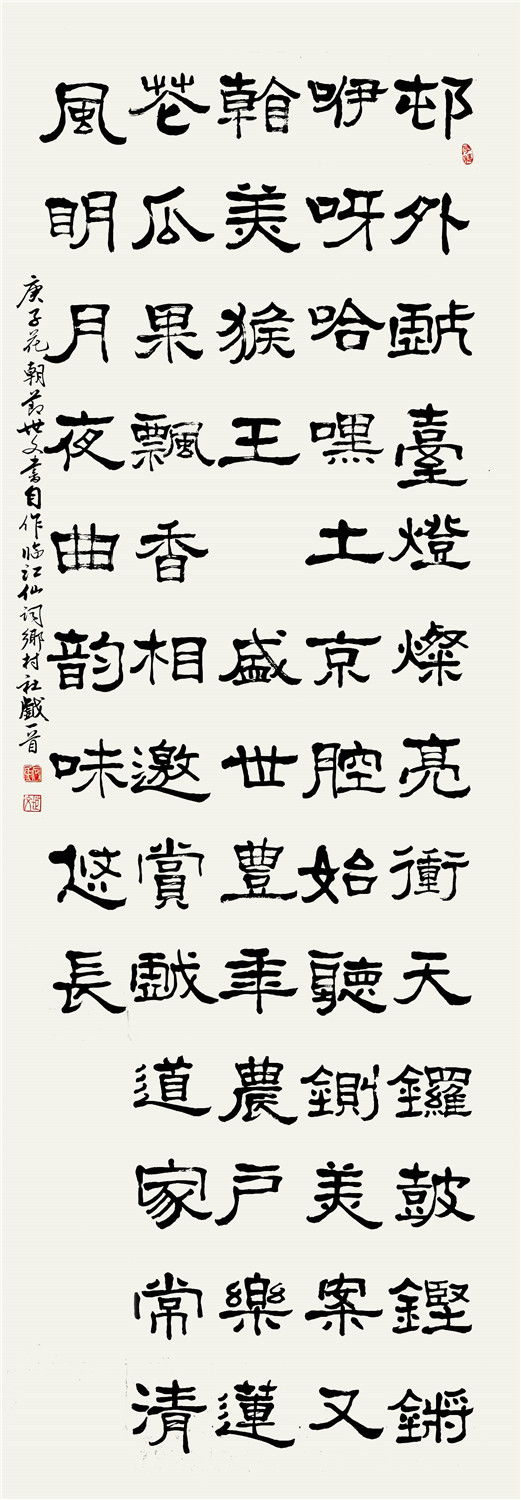 邨外戲臺燈燦亮衝天鑼鼓鏗鏘
咿呀哈嘿土京腔始聽鍘美案又
看美猴王 盛世豐年農戶樂蓮
花瓜果飄香相邀賞戲道家常清
風明月夜曲韵味悠長
庚子花朝節世文書自作臨江仙詞鄉村社戲一首